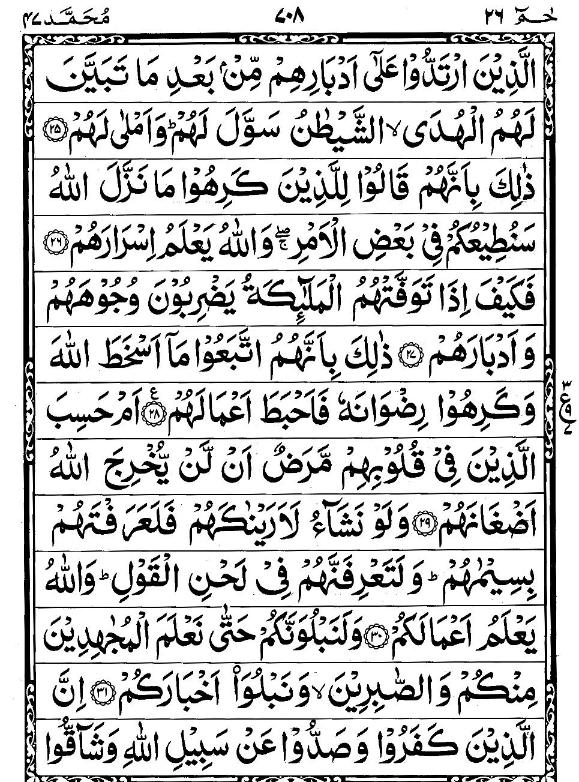 حٰمٓ ٢٦ ٧٠٨ مُحَمَّد ٤٧
الَّذِيْنَ ارْتَدُّوْا عَلٰٓى اَدْبَارِهِمْ مِّنْۢ بَعْدِ مَا تَبَيَّنَ
لَهُمُ الْهُدَى ۙ الشَّيْطٰنُ سَوَّلَ لَهُمْ ؕ وَاَمْلٰى لَهُمْ ٢٥
ذٰلِكَ بِاَنَّهُمْ قَالُوْا لِلَّذِيْنَ كَرِهُوْا مَا نَزَّلَ اللّٰهُ
سَنُطِيْعُكُمْ فِيْ بَعْضِ الْاَمْرِ ۖۚ وَاللّٰهُ يَعْلَمُ اِسْرَارَهُمْ ٢٦
فَكَيْفَ اِذَا تَوَفَّتْهُمُ الْمَلٰٓئِكَةُ يَضْرِبُوْنَ وُجُوْهَهُمْ
وَاَدْبَارَهُمْ ٢٧ ذٰلِكَ بِاَنَّهُمُ اتَّبَعُوْا مَاۤ اَسْخَطَ اللّٰهَ
وَكَرِهُوْا رِضْوَانَهٗ فَاَحْبَطَ اَعْمَالَهُمْ ٢٨ ع اَمْ حَسِبَ
الَّذِيْنَ فِيْ قُلُوْبِهِمْ مَّرَضٌ اَنْ لَّنْ يُّخْرِجَ اللّٰهُ
اَضْغَانَهُمْ ٢٩ وَلَوْ نَشَآءُ لَاَرَيْنٰكَهُمْ فَلَعَرَفْتَهُمْ
بِسِيْمٰهُمْ ؕ وَلَتَعْرِفَنَّهُمْ فِيْ لَحْنِ الْقَوْلِ ؕ وَاللّٰهُ
يَعْلَمُ اَعْمَالَكُمْ ٣٠ وَلَنَبْلُوَنَّكُمْ حَتّٰى نَعْلَمَ الْمُجٰهِدِيْنَ
مِنْكُمْ وَالصّٰبِرِيْنَ ۙ وَنَبْلُوَا۟ اَخْبَارَكُمْ ٣١ اِنَّ
الَّذِيْنَ كَفَرُوْا وَصَدُّوْا عَنْ سَبِيْلِ اللّٰهِ وَشَآقُّوا